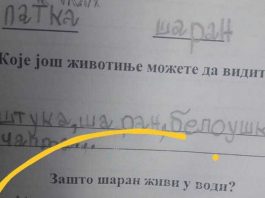 патка
шаран
Које још животиње можете да видит
штука, шаран, белоушк
Зашто шаран живи у води?